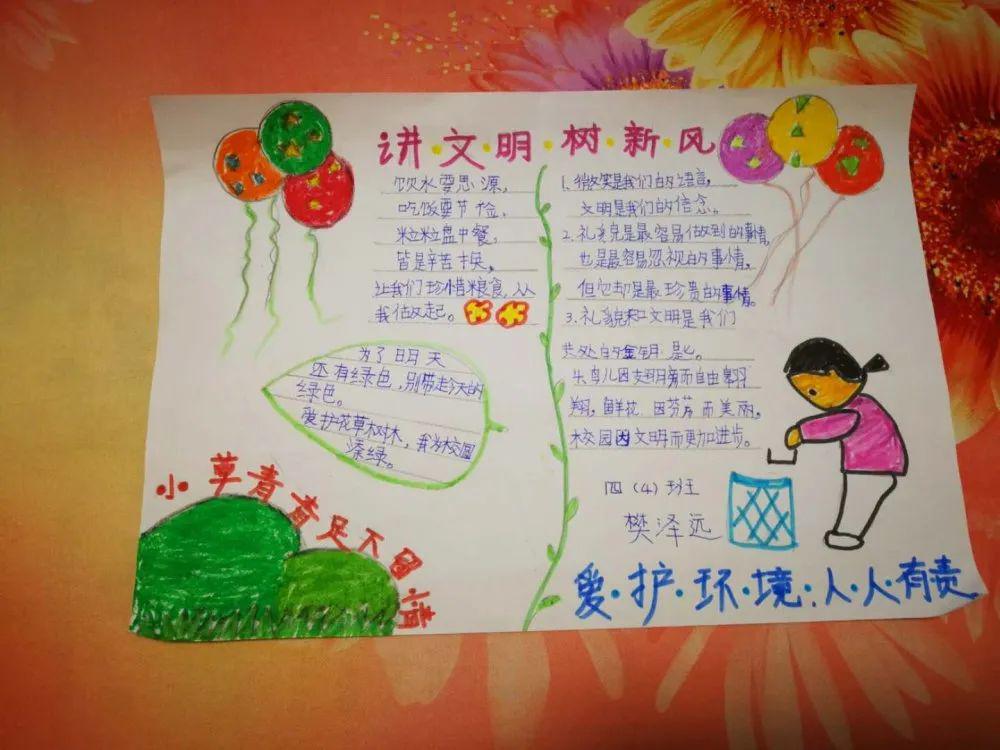 讲·文·明·树·新·风
饮水要思源,
吃饭要节俭,
粒粒盘中餐,
皆是辛苦换,
让我们珍惜粮食,人人
我做起。
1.微笑是我们的语言,
文明是我们的信念。
2.礼貌是最容易做到的事情,
也是最容易忽视的事情,
但它却是最珍贵的事情。
3.礼貌和文明是我们
共处的金钥匙。
鸟儿因文明而自由翱
翔,鲜花因芬芳而美丽,
校园因文明而更加进步。
四(4)班
樊泽远
为了明天
还有绿色,别带走今天的
绿色。
爱护花草树木,我为校园
添绿。
小草青青足下留情
爱·护·环·境·人·人·有责